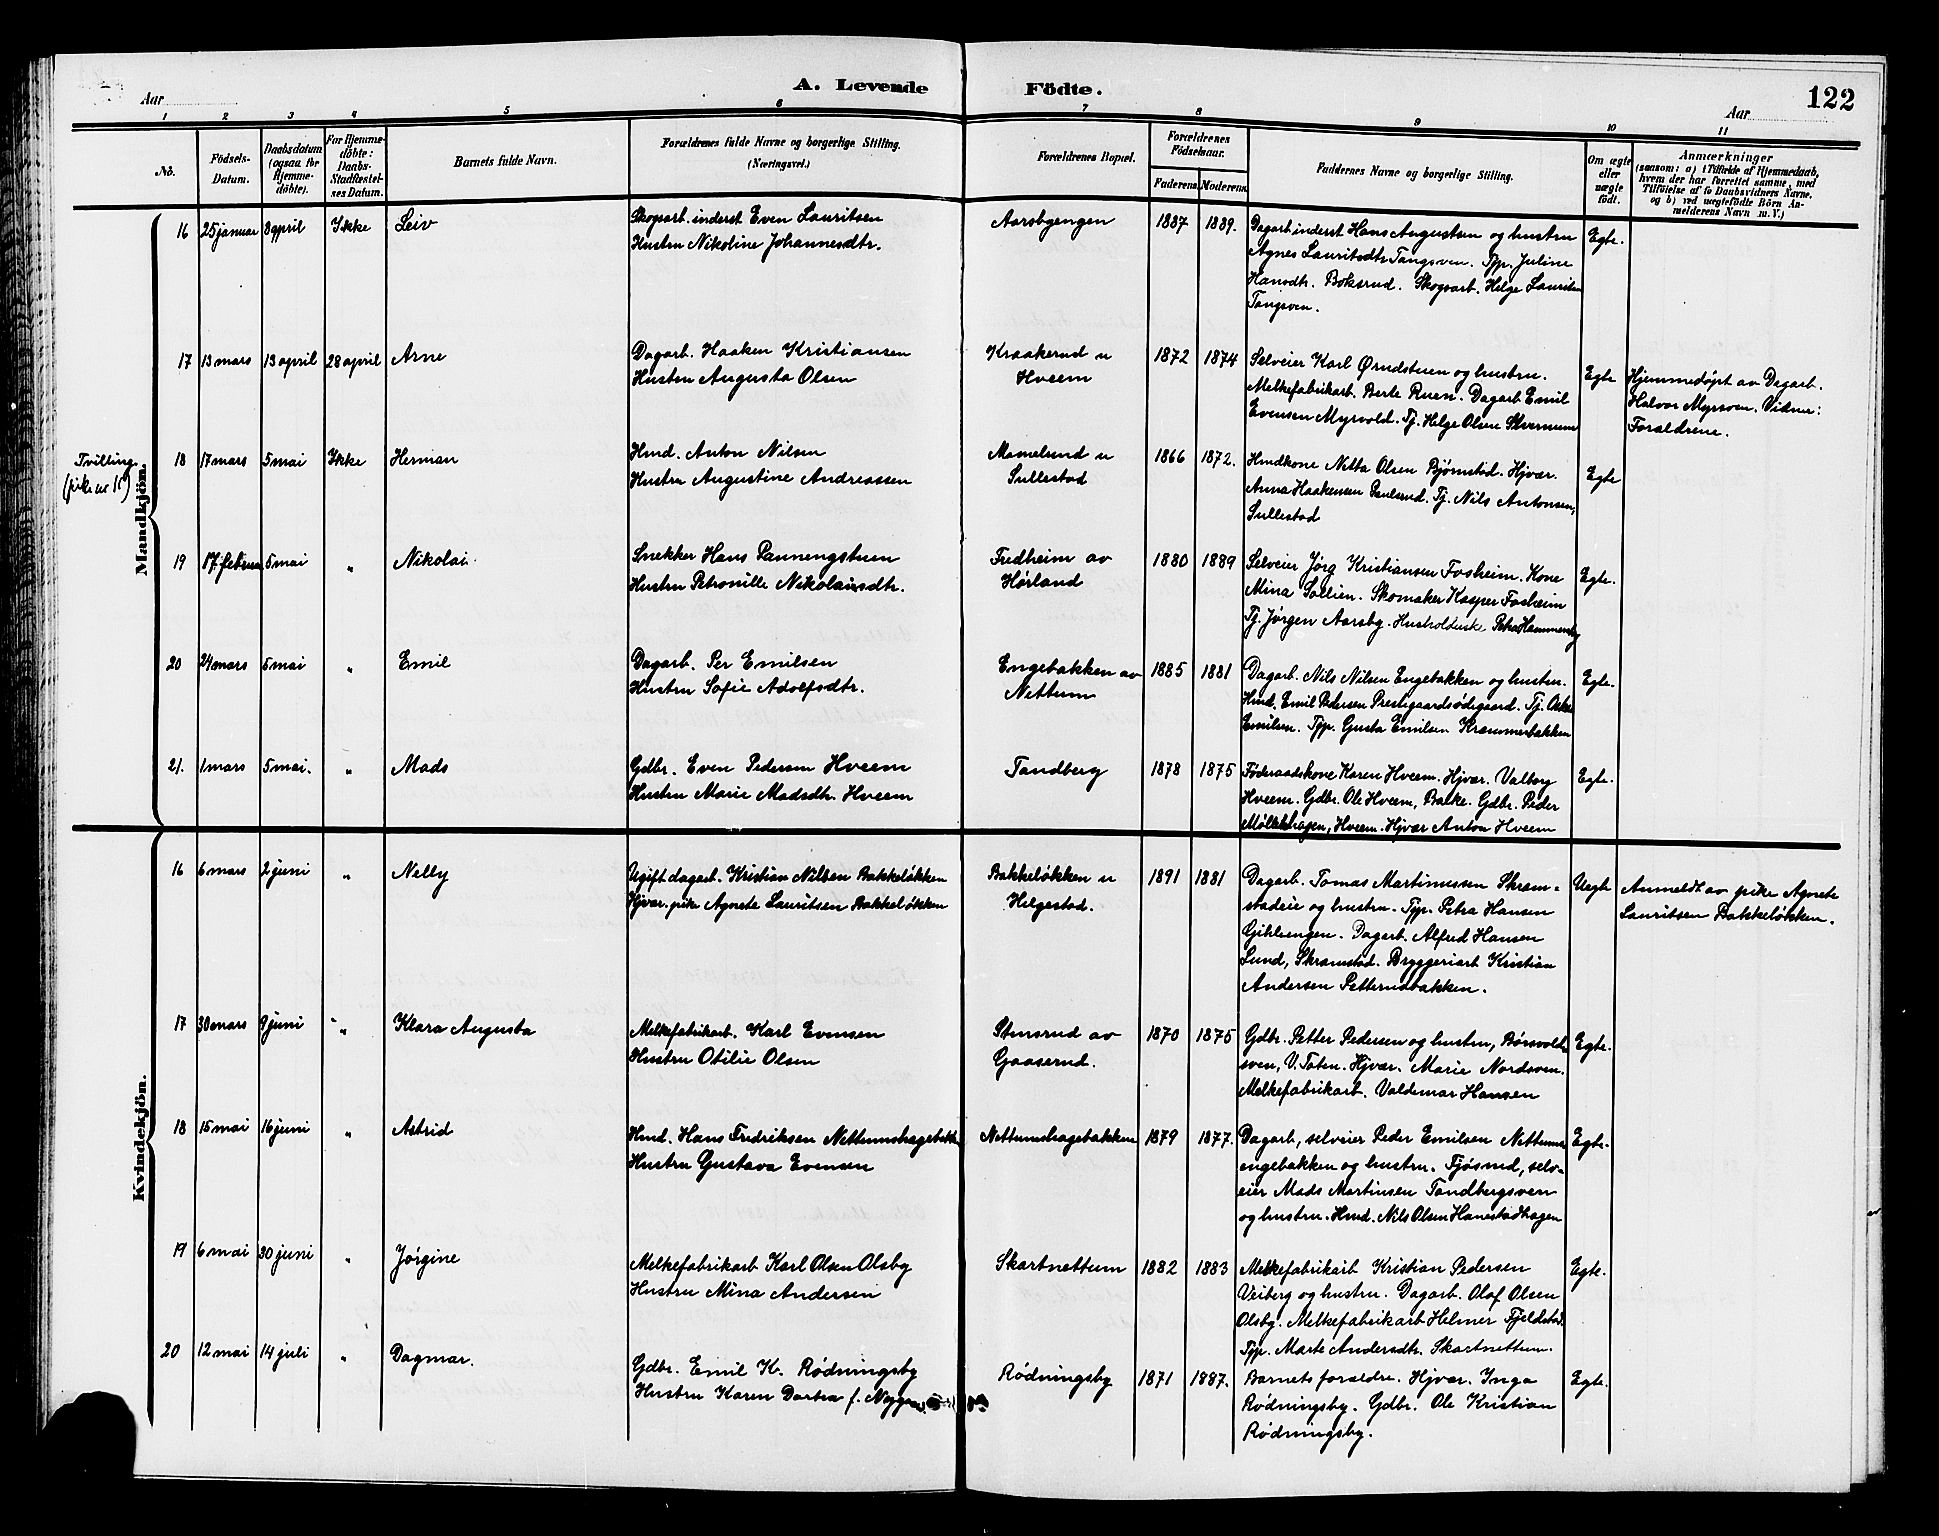 A. Levende Födte.
122
Aar
Aar
1 2 3 4 5 6 7 8 9 10 11
No.
Födsels-Datum.
Daabsdatum (ogsaa for Hjemme-döbte).
For Hjemme-döbte: Daabs-Stadfæstel-ses Datum.
Barnets fulde Navn.
Forældrenes fulde Navne og borgerlige Stilling. (Næringsvei.)
Forældrenes Bopæl.
Forældrenes Födselsaar.
Faderens Moderens
Faddernes Navne og borgerlige Stilling.
Om ægte eller uægte födt.
Anmærkninger
(saasom: a) i Tilfælde af Hjemmedaab,
hvem der har forrettet samme, med
Tilföielse af to Daabsvidners Navne,
og b) ved uægtefödte Börn An-
melderens Navn m. V.)
Mandkjön.
16 25 januar 8 april Ikke Leiv
Skogsarb. inderst Even Lauritsen
Hustru Nikoline Johannesdtr.
Aarsbyengen
1887 1889.
Dagarb. inderst Hans Augustsen og hustru
Agnes Lauritsdtr. Tangsven. Tjp. Juline
Hansdtr. Boksrud. Skogsarb. Helge Lauritsen
Tangsven.
Egte.
17 13 mars 13 april 28 april Arne
Dagarb. Haaken Kristiansen
Hustru Augusta Olsen
Kraakerud u
Hveem
1872 1874
Selveier Karl Ørudstuen og hustru.
Melkefabrikarb. Berte Ruen. Dagarb Emil
Evensen Myrvold. Tj. Helge Olsen Skvernum
Egte
Hjemmedøpt av Dagarb.
Halvor Myrsven. Vidner:
Forældrene.
Tvilling
(pike nr 15)
18 17 mars 5 mai Ikke Herman
Hmd. Anton Nilsen
Hustru Augustine Andreassen
Mamelund u
Sullestad
1866 1872.
Hmdkone Netta Olsen Bjørnstad. Hjvær.
Anna Haakensen Paulsrud. Tj. Nils Antonsen,
Sullestad
Egte
19 17 februar 5 mai " Nikolai
Snekker Hans Pannengstuen
Hustru Petronille Nikolaisdtr.
Fredheim av
Hørland
1880 1889
Selveier Jørg Kristiansen Fosheim. Kone
Mina Sollien. Skomaker Kasper Fosheim
Tj. Jørgen Aarsby. Husholderske Petra Hammersby
Egte.
20 24 mars 5 mai " Emil
Dagarb. Per Emilsen
Hustru Sofie Adolfsdtr.
Engebakken av
Nettum
1885 1881
Dagarb. Nils Nilsen Engebakken og hustru.
Hmd. Emil Pedersen Prestegaardsødegaard. Tj. Oskar
Emilsen. Tjp. Gusta Emilsen Kræmmerbakken
Egte.
21. 1 mars 5 mai. " Mads
Gdbr. Even Pedersen Hveem
Hustru Marie Madsdtr. Hveem
Tandberg
1878 1875
Føderaadskone Karen Hveem. Hjvær. Valborg
Hveem. Gdbr. Ole Hveem, Balke. Gdbr. Peder
Møllerhagen, Hveem. Hjvær Anton Hveem
Egte.
Kvindekjön.
16 6 mars 2 juni " Nelly
Ugift dagarb. Kristian Nilsen Bakkeløkken
Hjvær. pike Agnete Lauritsen Bakkeløkken
Bakkeløkken u
Helgestad.
1891 1881
Dagarb. Tomas Martinussen Skram-
stadeie og hustru. Tjp. Petra Hansen
Gihlsengen. Dagarb. Alfred Hansen
Lund, Skramstad. Bryggeriarb Kristian
Andersen Petterudbakken.
Uegte
Anmeldt av pike Agnete
Lauritsen Bakkeløkken.
17 30 mars 9 juni " Klara Augusta
Melkefabrikarb. Karl Evensen
Hustru Otilie Olsen
Stensrud av
Gaaserud.
1870 1875
Gdbr. Petter Pedersen og hustru, Børsvold-
sven, V. Toten. Hjvær. Marie Nordsven.
Melkefabrikarb. Valdemar Hansen
Egte.
18 15 mai 16 juni " Astrid
Hmd. Hans Fredriksen Nettumshagebakk
Hustru Gustava Evensen
Nettumshagebakken
1879 1877.
Dagarb, selveier Peder Emilsen Nettums-
engebakken og hustru. Fjøsmd, selv-
eier Mads Martinsen Tandbergsven
og hustru. Hmd. Nils Olsen Hanestadhagen
Egte.
19 6 mai 30 juni " Jørgine
Melkefabrikarb Karl Olsen Olsby
Hustru Mina Andersen
Skartnettum
1882 1883
Melkefabrikarb Kristian Pedersen
Veiberg og hustru. Dagarb. Olaf Olsen
Olsby. Melkefabrikarb Helmer Fjeldstad.
Tjp. Marte Andersdtr. Skartnettum.
Egte.
20 12 mai 14 juli " Dagmar.
Gdbr. Emil K. Rødningsby
Hustru Karen Dortea f.
Rødningsby
1871 1887.
Barnets foraldre. Hjvær. Inga
Rødningsby. Gdbr. Ole Kristian
Rødningsby.
Egte.